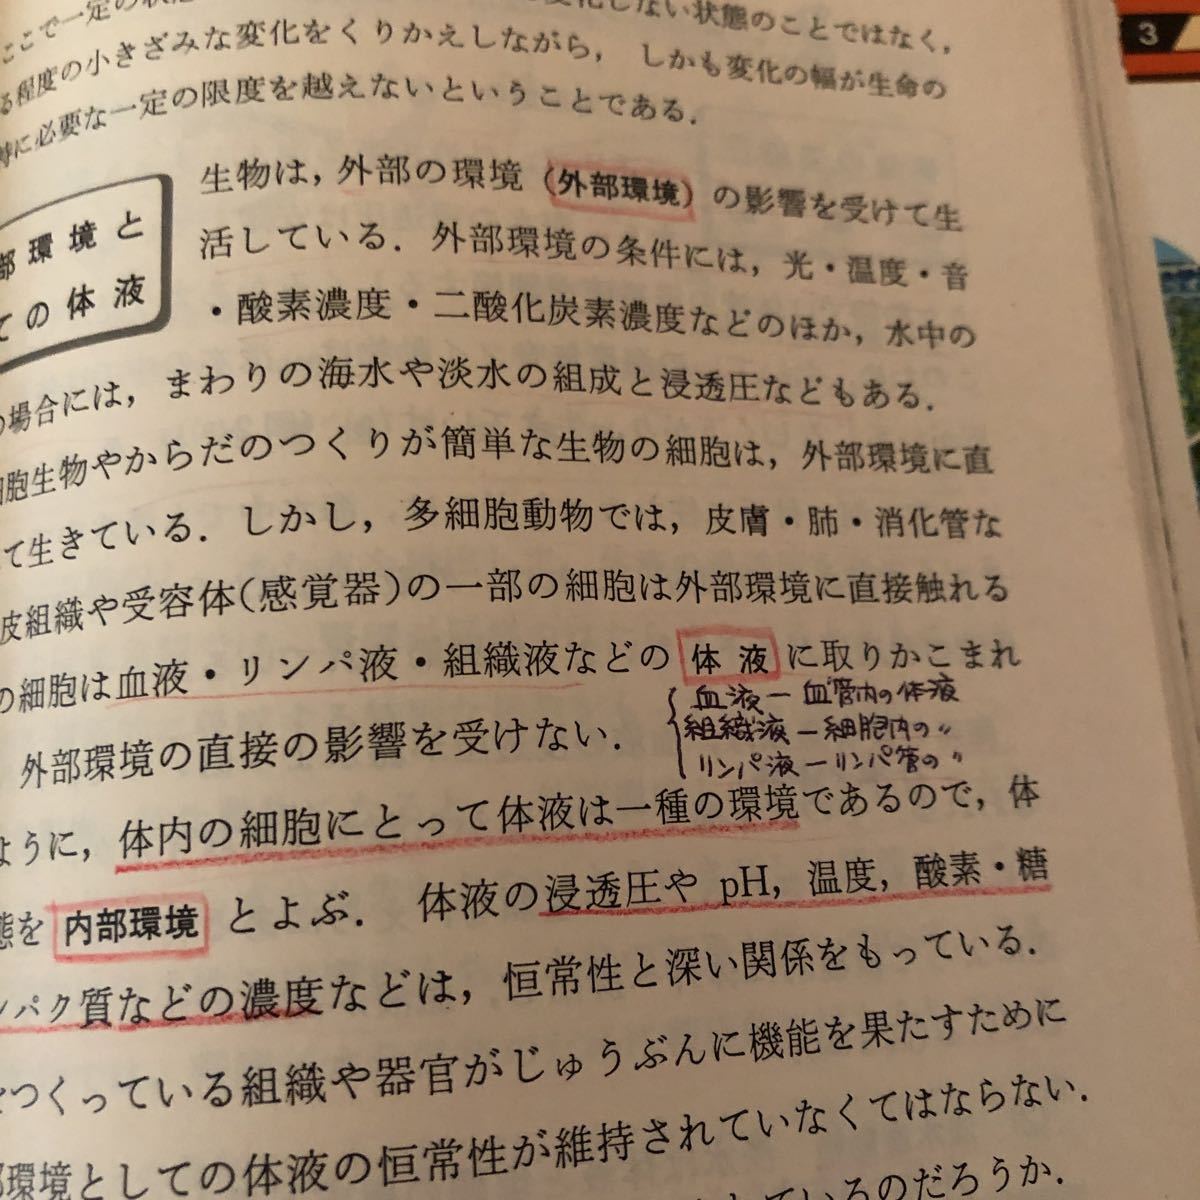 ここで一定の状態
変化しない状態のことではなく，
る程度の小きざみな変化をくりかえしながら，しかも変化の幅が生命の
持に必要な一定の限度を越えないということである．
3
部環境と
ての体液
生物は，外部の環境（外部環境）の影響を受けて生
活している．外部環境の条件には，光・温度・音
・酸素濃度・二酸化炭素濃度などのほか，水中の
の場合には，まわりの海水や淡水の組成と浸透圧などもある．
細胞生物やからだのつくりが簡単な生物の細胞は，外部環境に直
て生きている．しかし，多細胞動物では，皮膚・肺・消化管な
皮組織や受容体(感覚器)の一部の細胞は外部環境に直接触れる
の細胞は血液・リンパ液・組織液などの体液に取りかこまれ
血液ー血管内の体液
組織液ー細胞内の〃
リンパ液ーリンパ管の〃
外部環境の直接の影響を受けない．
ように，体内の細胞にとって体液は一種の環境であるので，体
態を内部環境とよぶ．体液の浸透圧や pH，温度，酸素・糖
ンパク質などの濃度などは，恒常性と深い関係をもっている．
をつくっている組織や器官がじゅうぶんに機能を果たすために
部環境としての体液の恒常性が維持されていなくてはならない．
ているのだろうか．